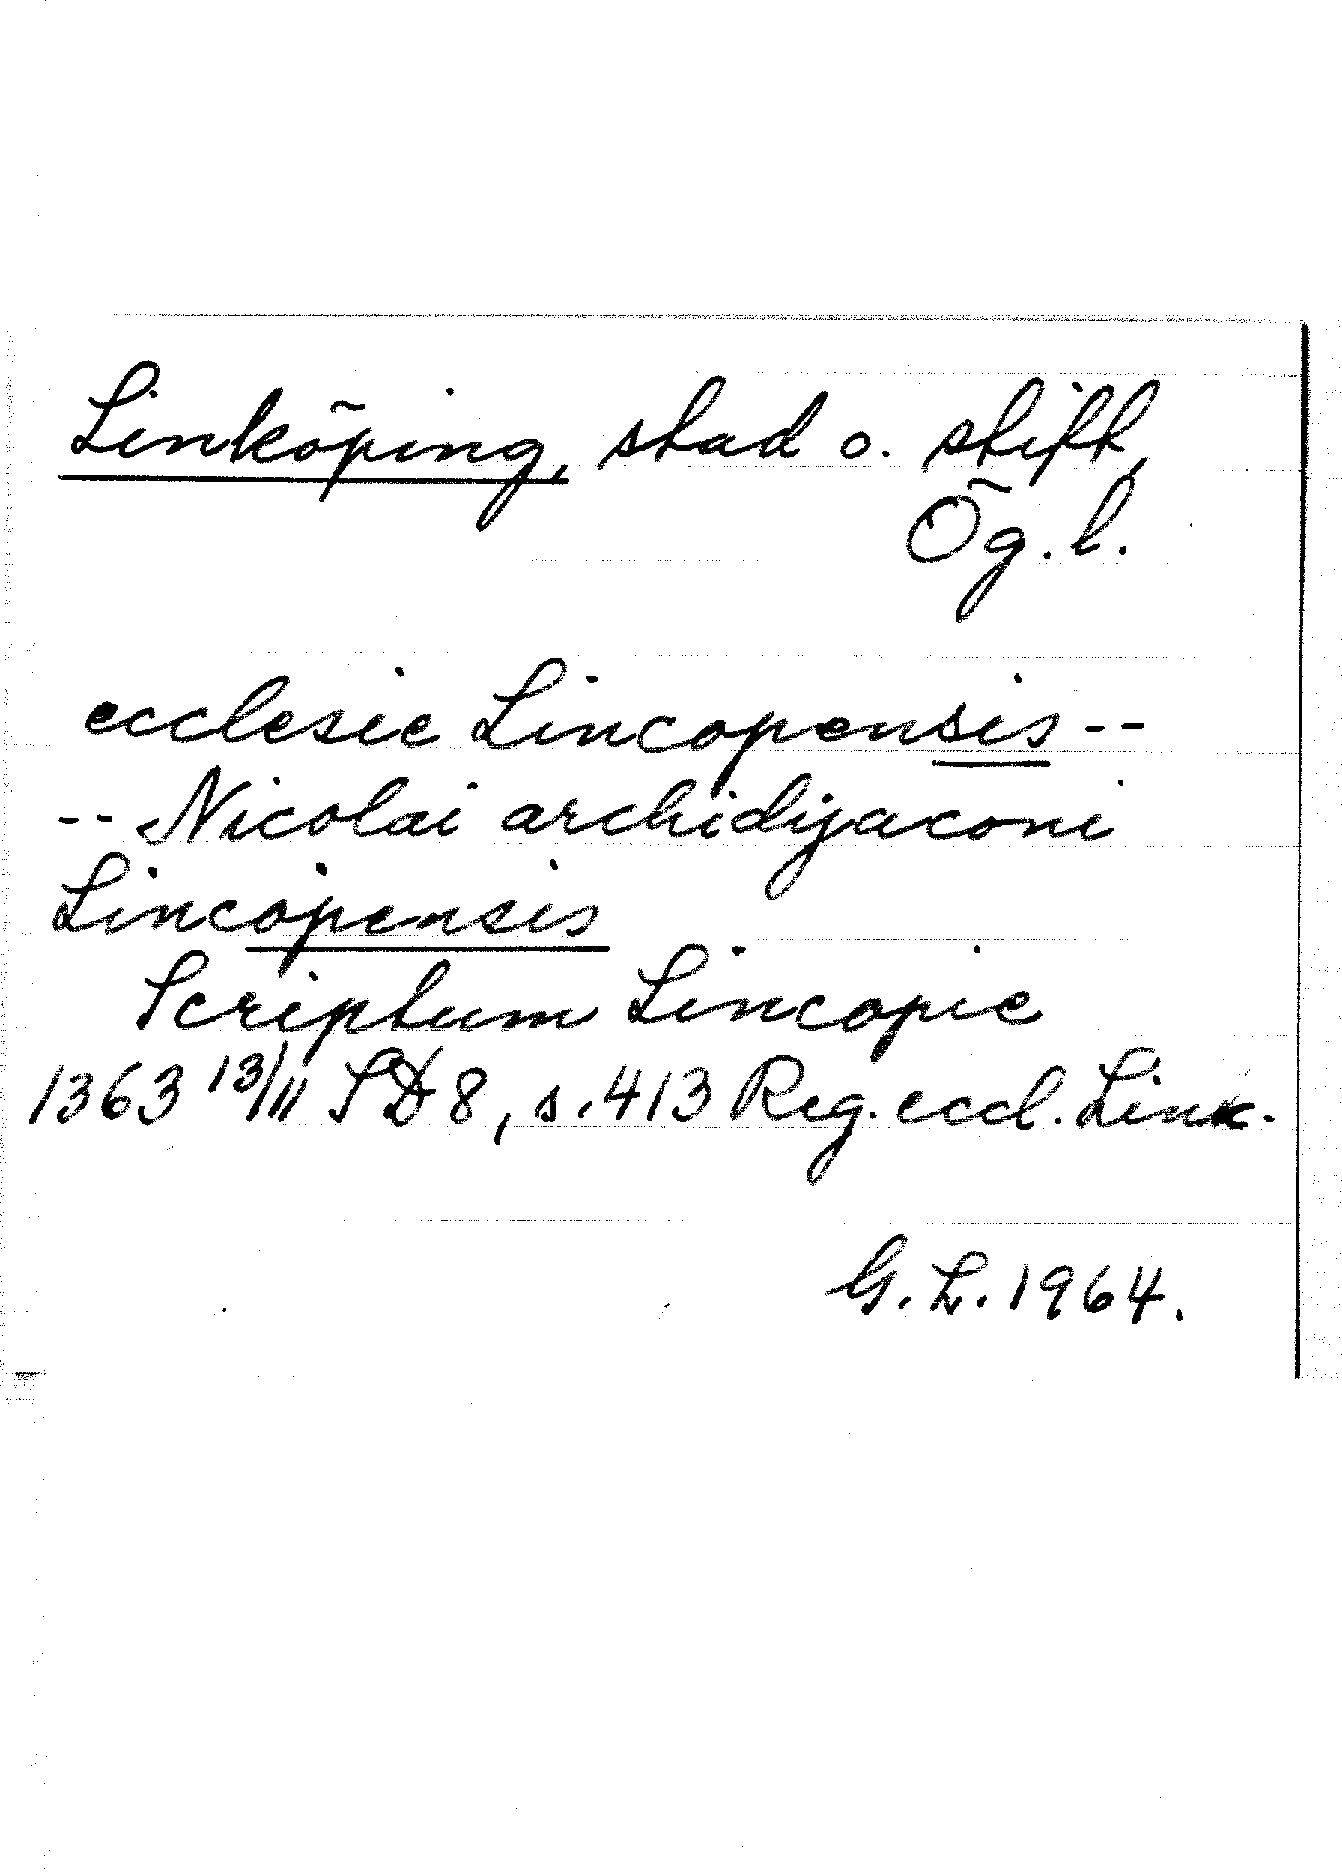 Linköping, stad o. stift,
Ög. l.
ecclesie Lincopensis --
-- Nicolai archidyaconi
Lincopensis
Scriptum Lincopie
1363 13/11 SD 8, s. 413 Reg. eccl. Link.
G. L. 1964.